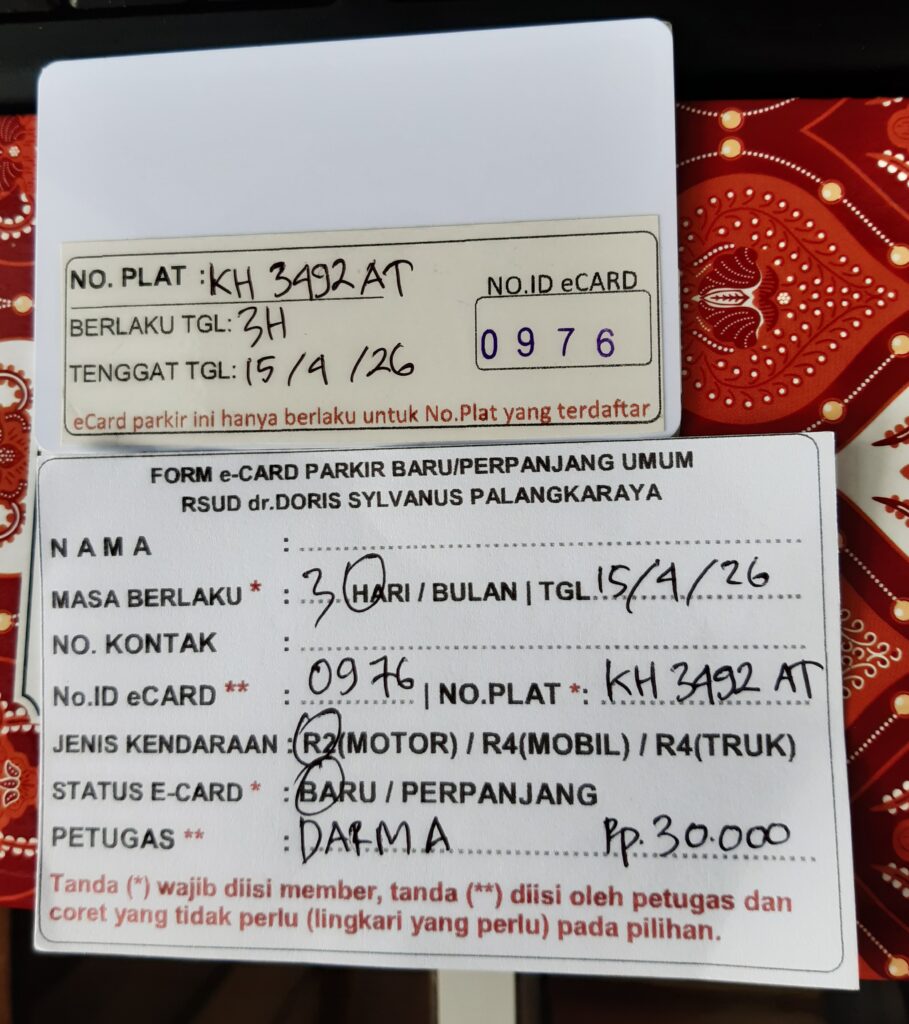 NO. PLAT : KH 3492 AT
NO.ID eCARD
BERLAKU TGL: 3H
0976
TENGGAT TGL: 15/4/26
eCard parkir ini hanya berlaku untuk No.Plat yang terdaftar
FORM e-CARD PARKIR BARU/PERPANJANG UMUM
RSUD dr.DORIS SYLVANUS PALANGKARAYA
NAMA :
MASA BERLAKU * : 3 HARI / BULAN | TGL 15/4/26
NO. KONTAK :
No.ID eCARD ** : 0976 | NO.PLAT *: KH 3492 AT
JENIS KENDARAAN : R2(MOTOR) / R4(MOBIL) / R4(TRUK)
STATUS E-CARD * : BARU / PERPANJANG
PETUGAS ** : DARMA Rp. 30.000
Tanda (*) wajib diisi member, tanda (**) diisi oleh petugas dan
coret yang tidak perlu (lingkari yang perlu) pada pilihan.